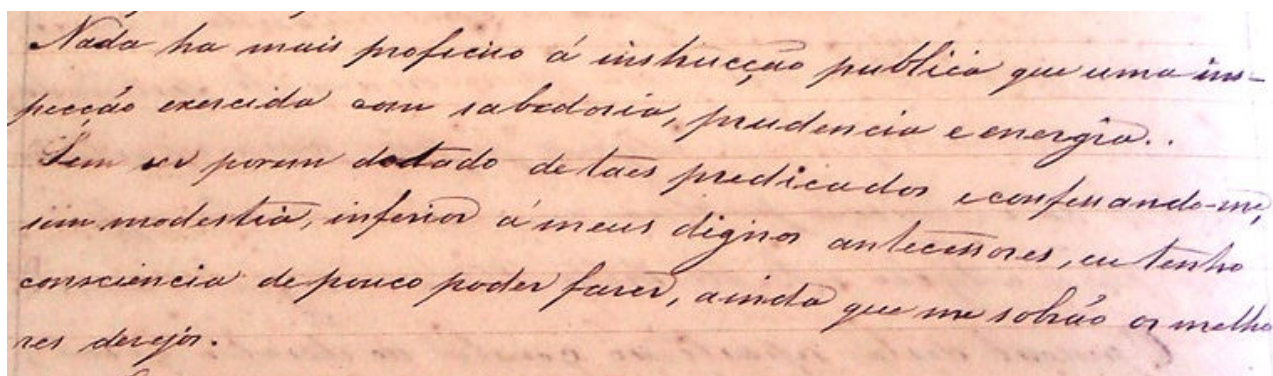 Nada ha mais proficuo á instrucção publica que uma ins-
pecção exercida com sabedoria, prudencia e energia..
Sem ser porem dotado de taes predicados e confessando-me,
sem modestia, inferior á meus dignos antecessores, eu tenho
consciencia de pouco poder fazer, ainda que me sobrão os melho
res desejos.